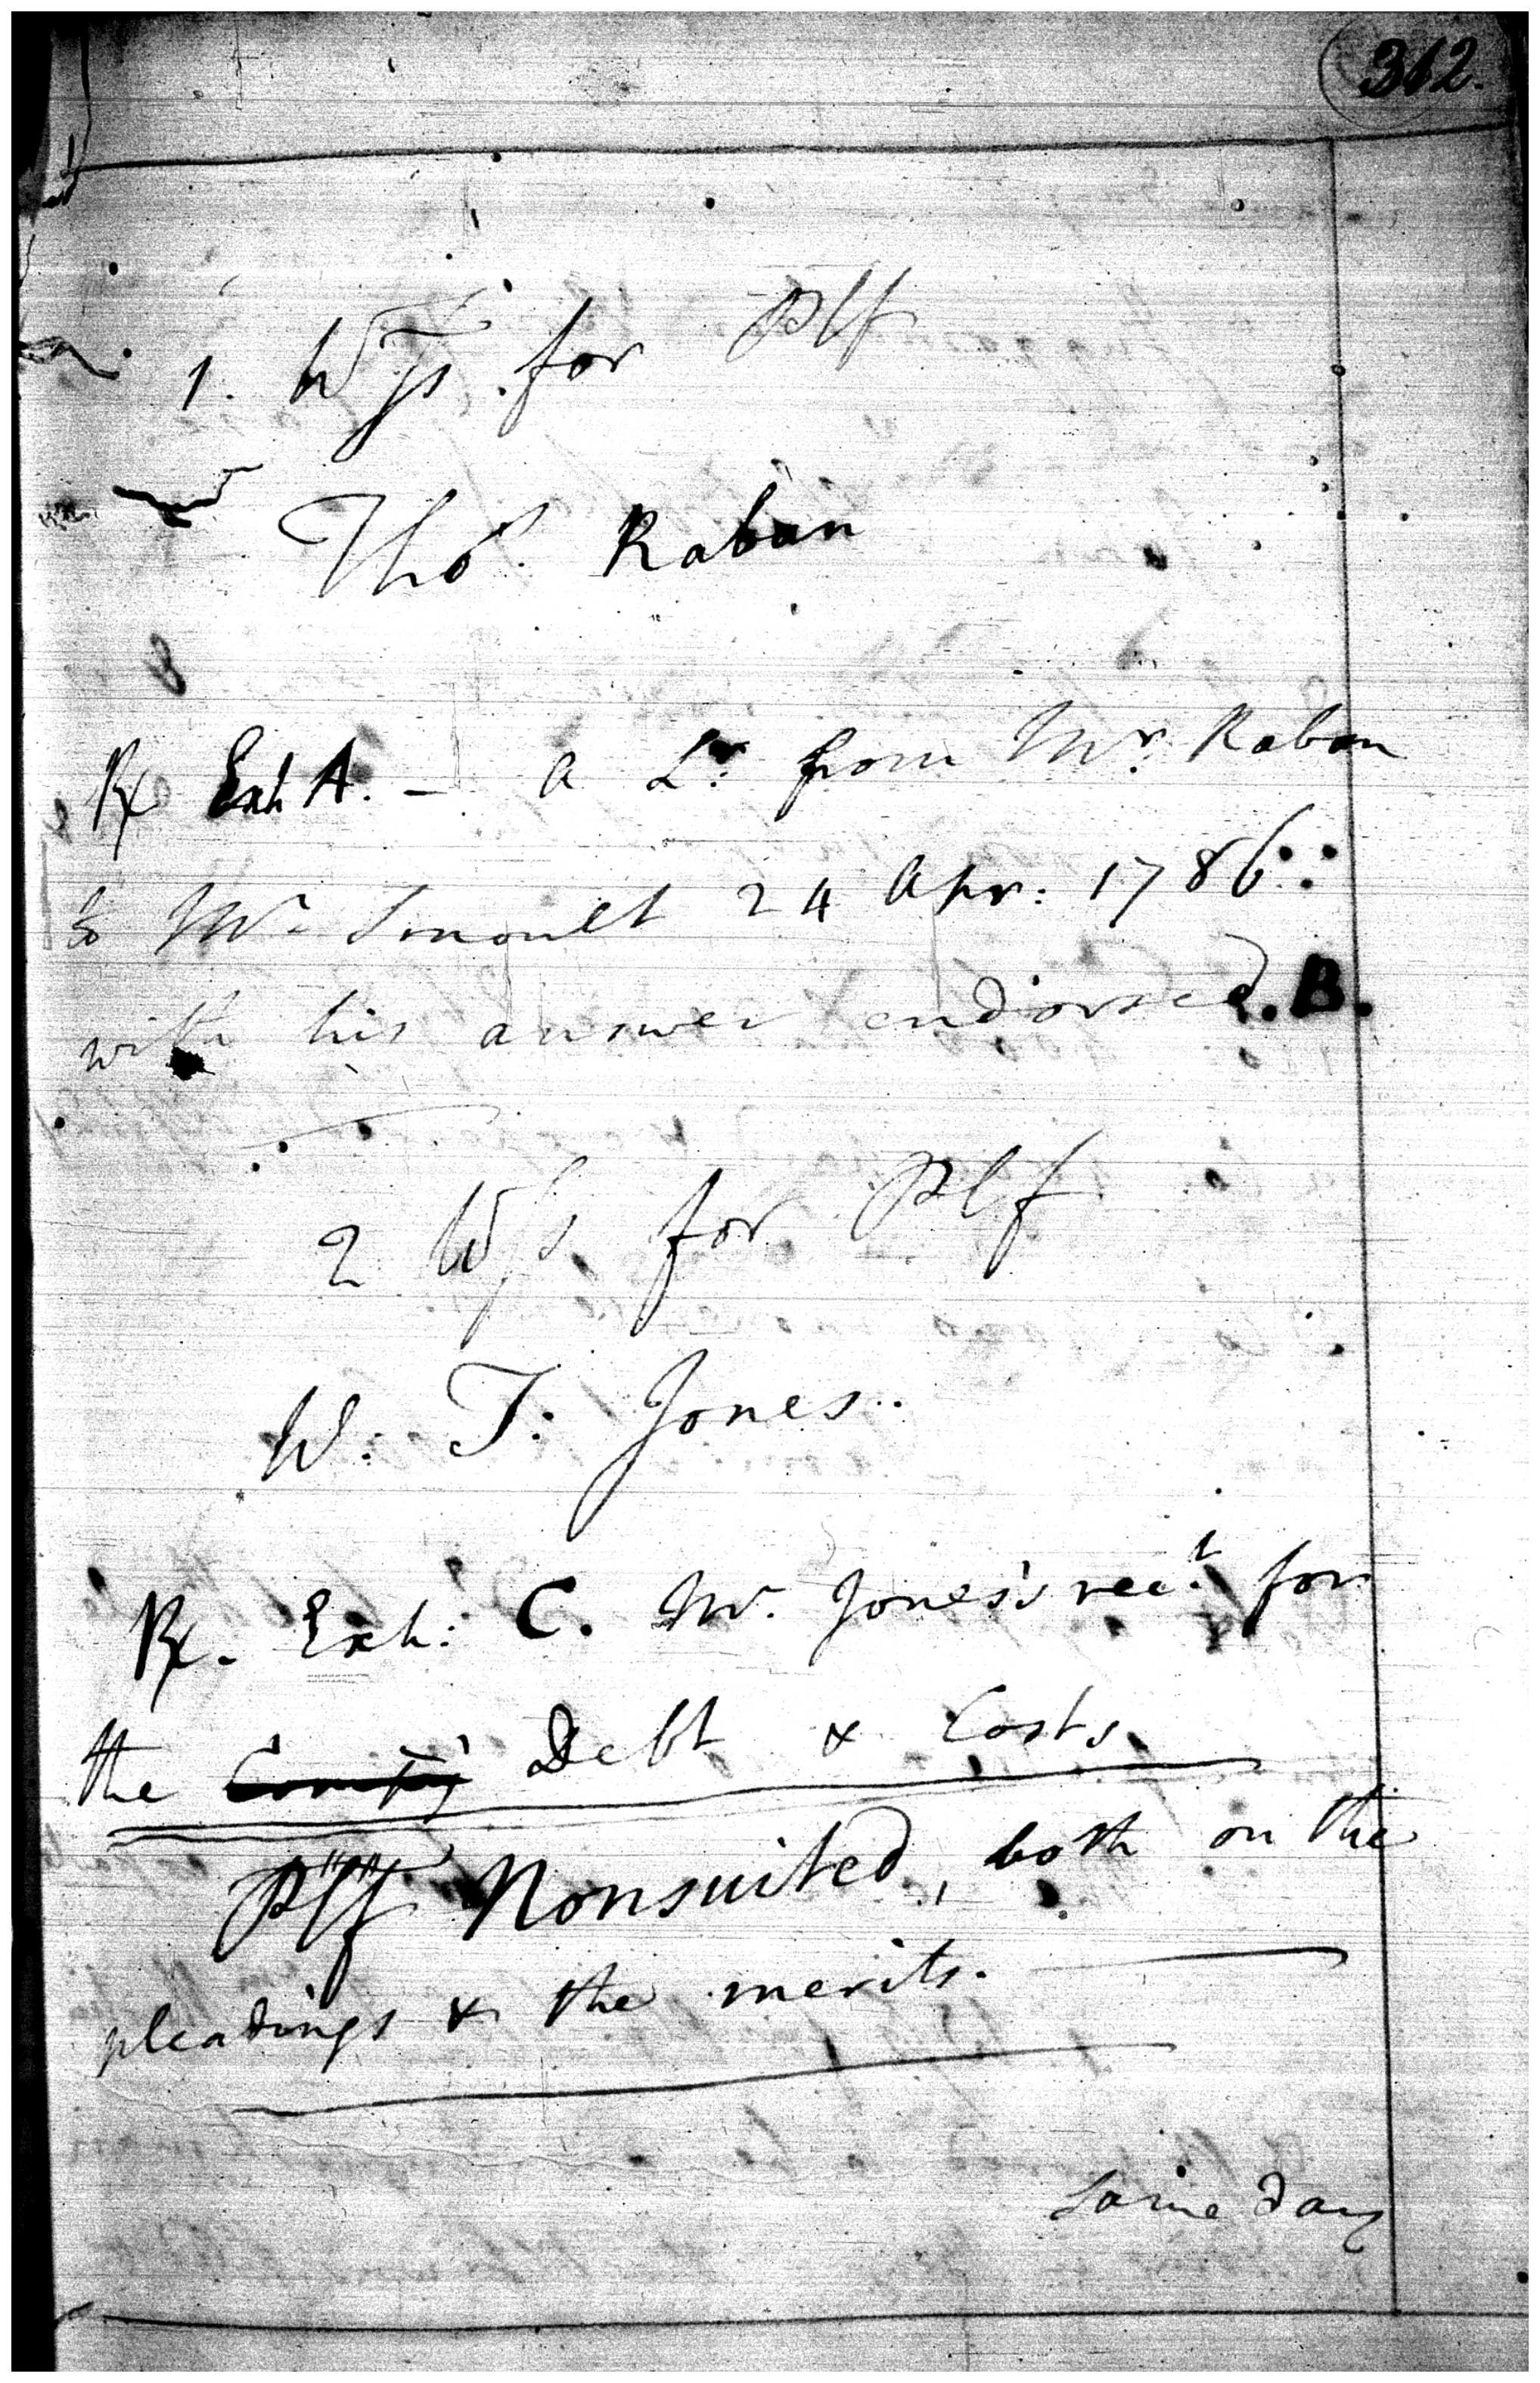 312.
1. Wſs for Plf
Thos. Raban
Rx Exh A. - a Lr: from Mr. Raban
to Mr. Smoult 24 Apr: 1786::
with his answer endorsed. B.
2 Wſs for Plf
W: T: Jones..
Rx. Exh: C. Mr. Jones's rect. for
the Debt & Costs
Plff Nonsuited, both on the
pleadings & the merits.
Same day